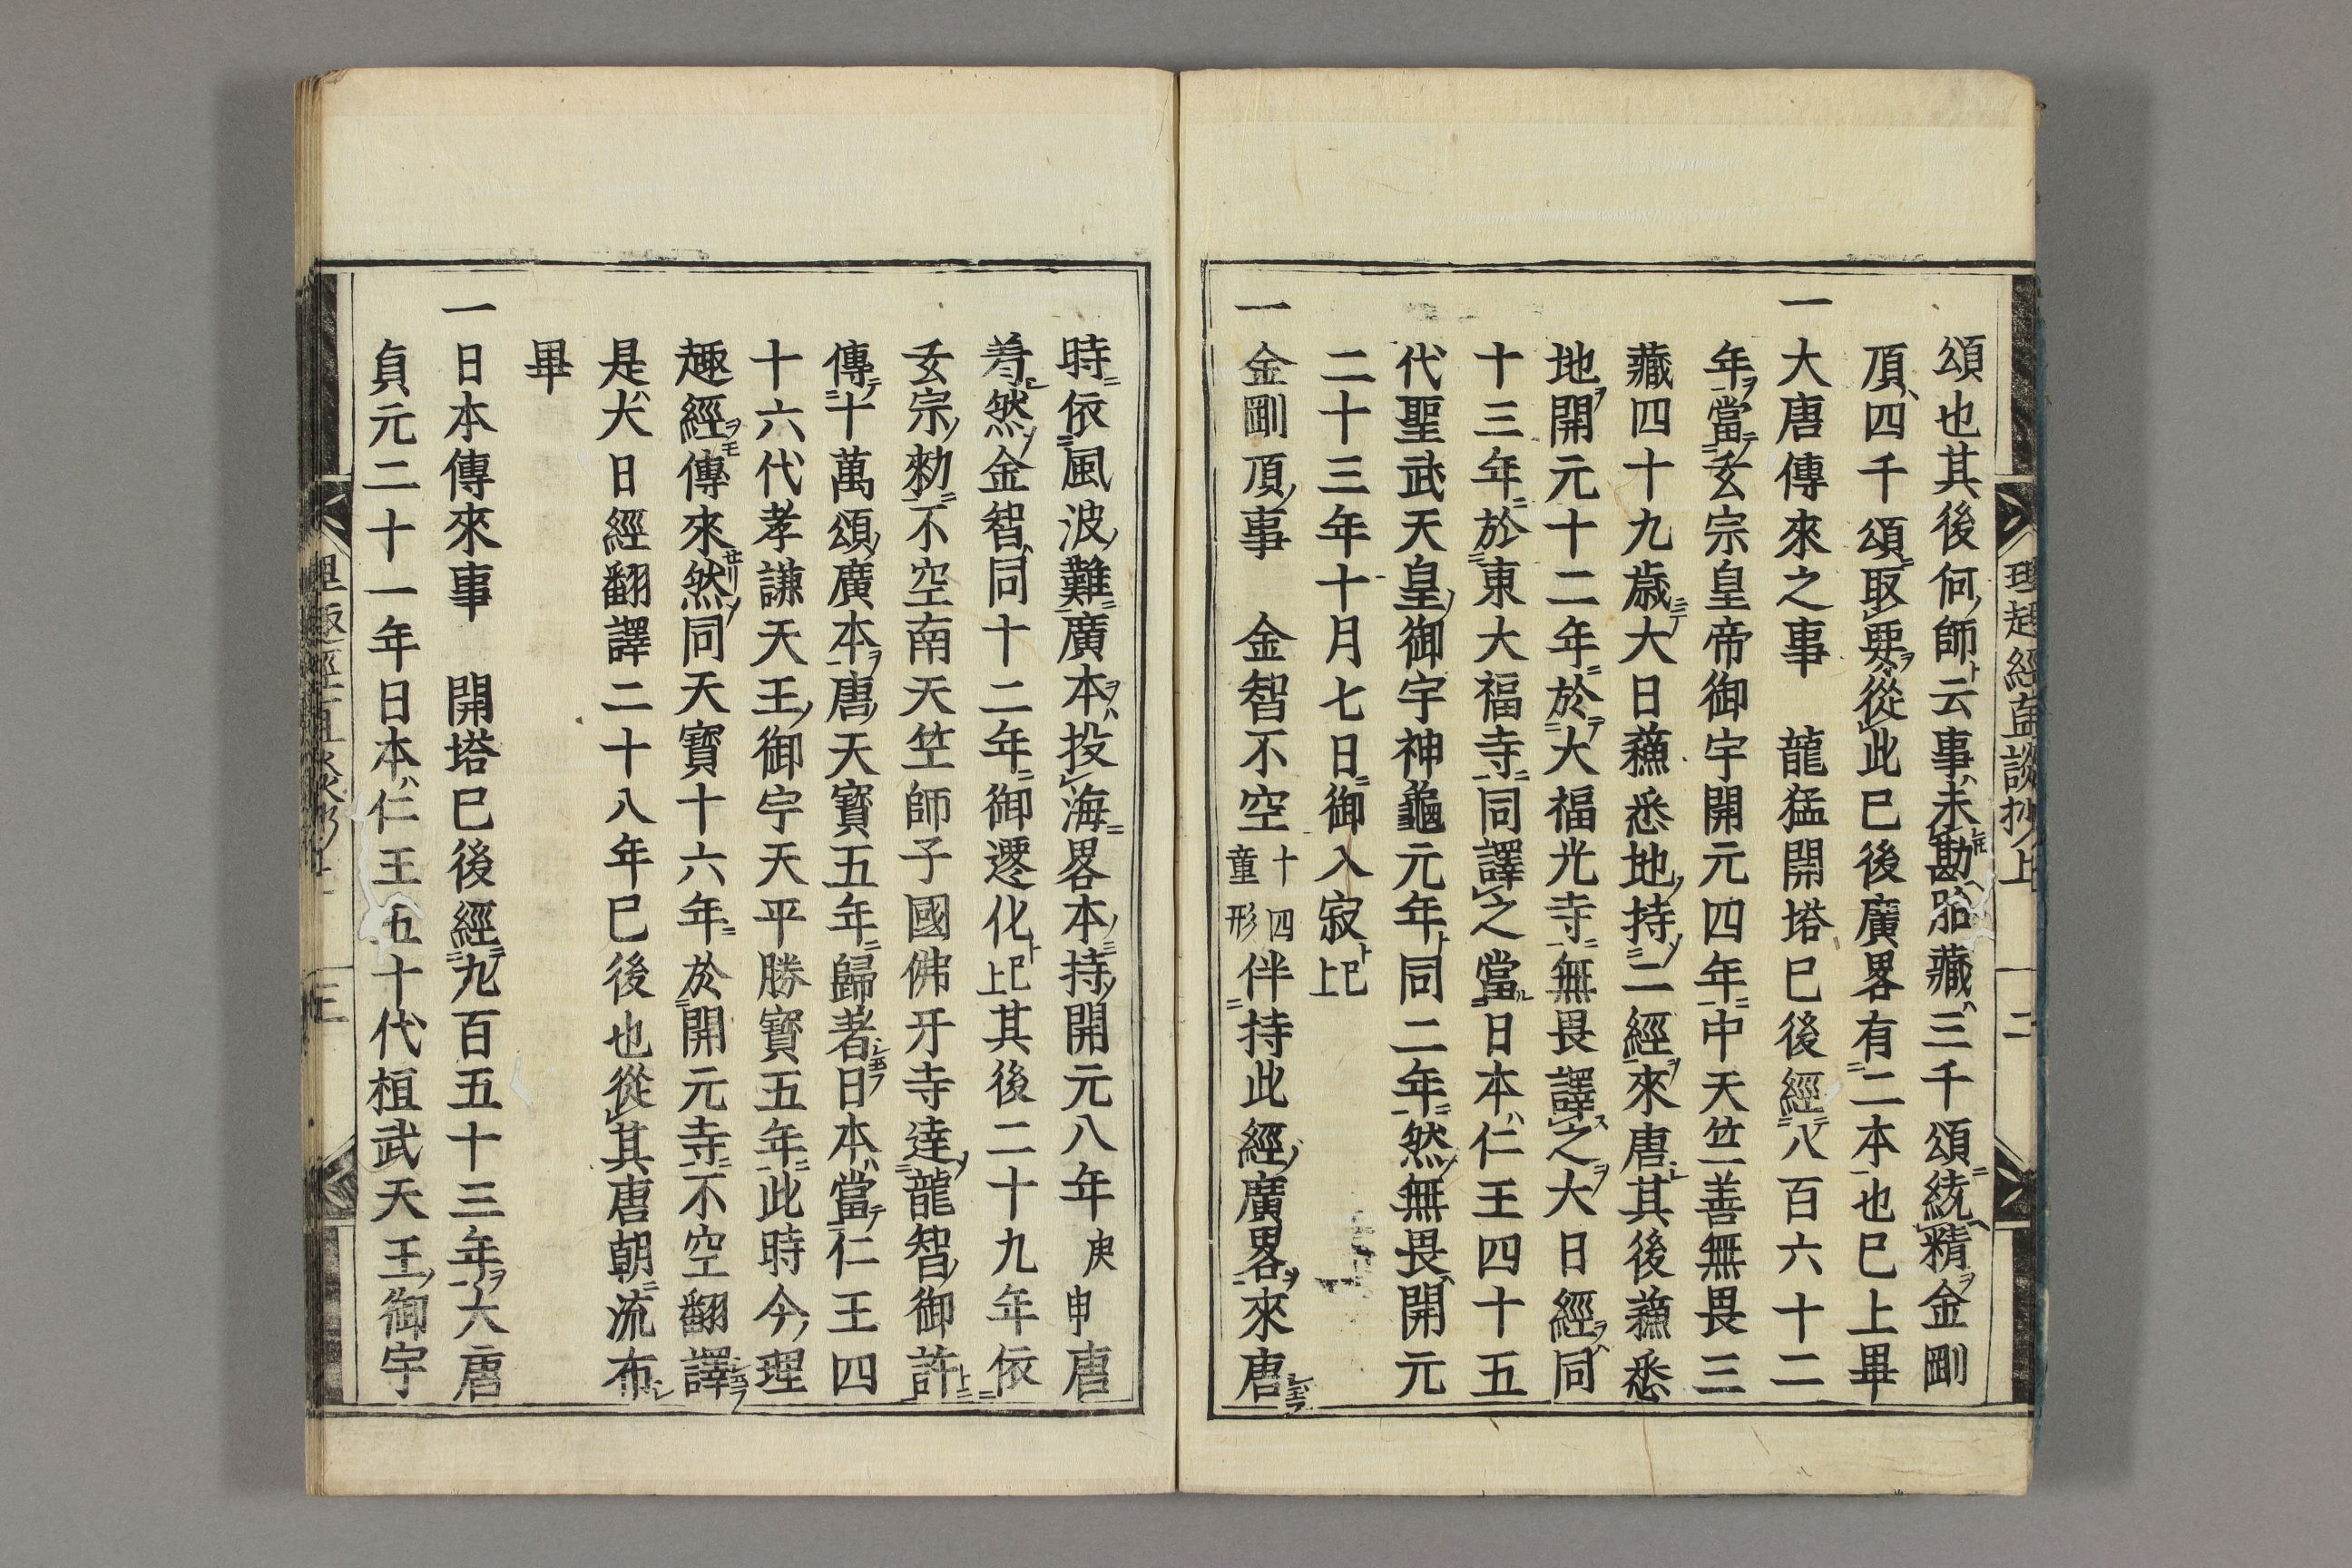 頌也其後何師云事未勘胎藏三千頌䊎精金剛
頂四千頌取要從此已後廣畧有二本也已上畢
一大唐傳來之事　龍猛開塔已後經八百六十二
年當玄宗皇帝御宇開元四年中天竺善無畏三
藏四十九歳大日蘓悉地持二經來唐其後蘓悉
地開元十二年於大福光寺無畏譯之大日經同
十三年於東大福寺同譯之當日本仁王四十五
代聖武天皇御宇神龜元年同二年然無畏開元
二十三年十月七日御入寂已上
一金剛頂事　金智不空十四童形伴持此經廣畧來唐
時依風波難廣本投海畧本持開元八年庚申唐
着然金智同十二年御遷化已上其後二十九年依
玄宗勅不空南天竺師子國佛牙寺達龍智御許
傳十萬頌廣本唐天寳五年歸者日本當仁王四
十六代孝謙天王御宇天平勝寳五年此時今理
趣經傳來然同天寳十六年於開元寺不空翻譯
是大日經翻譯二十八年已後也從其唐朝流布
畢
一日本傳來事　開塔已後經九百五十三年大唐
貞元二十一年日本仁王五十代桓武天王御宇
理趣經直談抄上　二
理趣經直談抄上　三